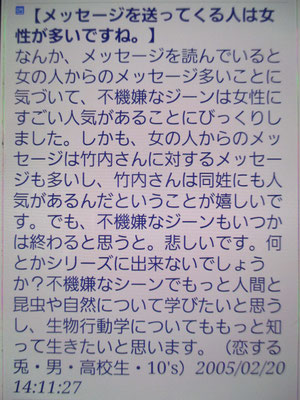 【メッセージを送ってくる人は女
性が多いですね。】
なんか、メッセージを読んでいると
女の人からのメッセージ多いことに
気づいて、不機嫌なジーンは女性に
すごい人気があることにびっくりし
ました。しかも、女の人からのメッ
セージは竹内さんに対するメッセー
ジも多いし、竹内さんは同姓にも人
気があるんだということが嬉しいで
す。でも、不機嫌なジーンもいつか
は終わると思うと。悲しいです。何
とかシリーズに出来ないでしょう
か？不機嫌なシーンでもっと人間と
昆虫や自然について学びたいと思う
し、生物行動学についてももっと知
って生きたいと思います。（恋する
兎・男・高校生・10's）2005/02/20
14:11:27